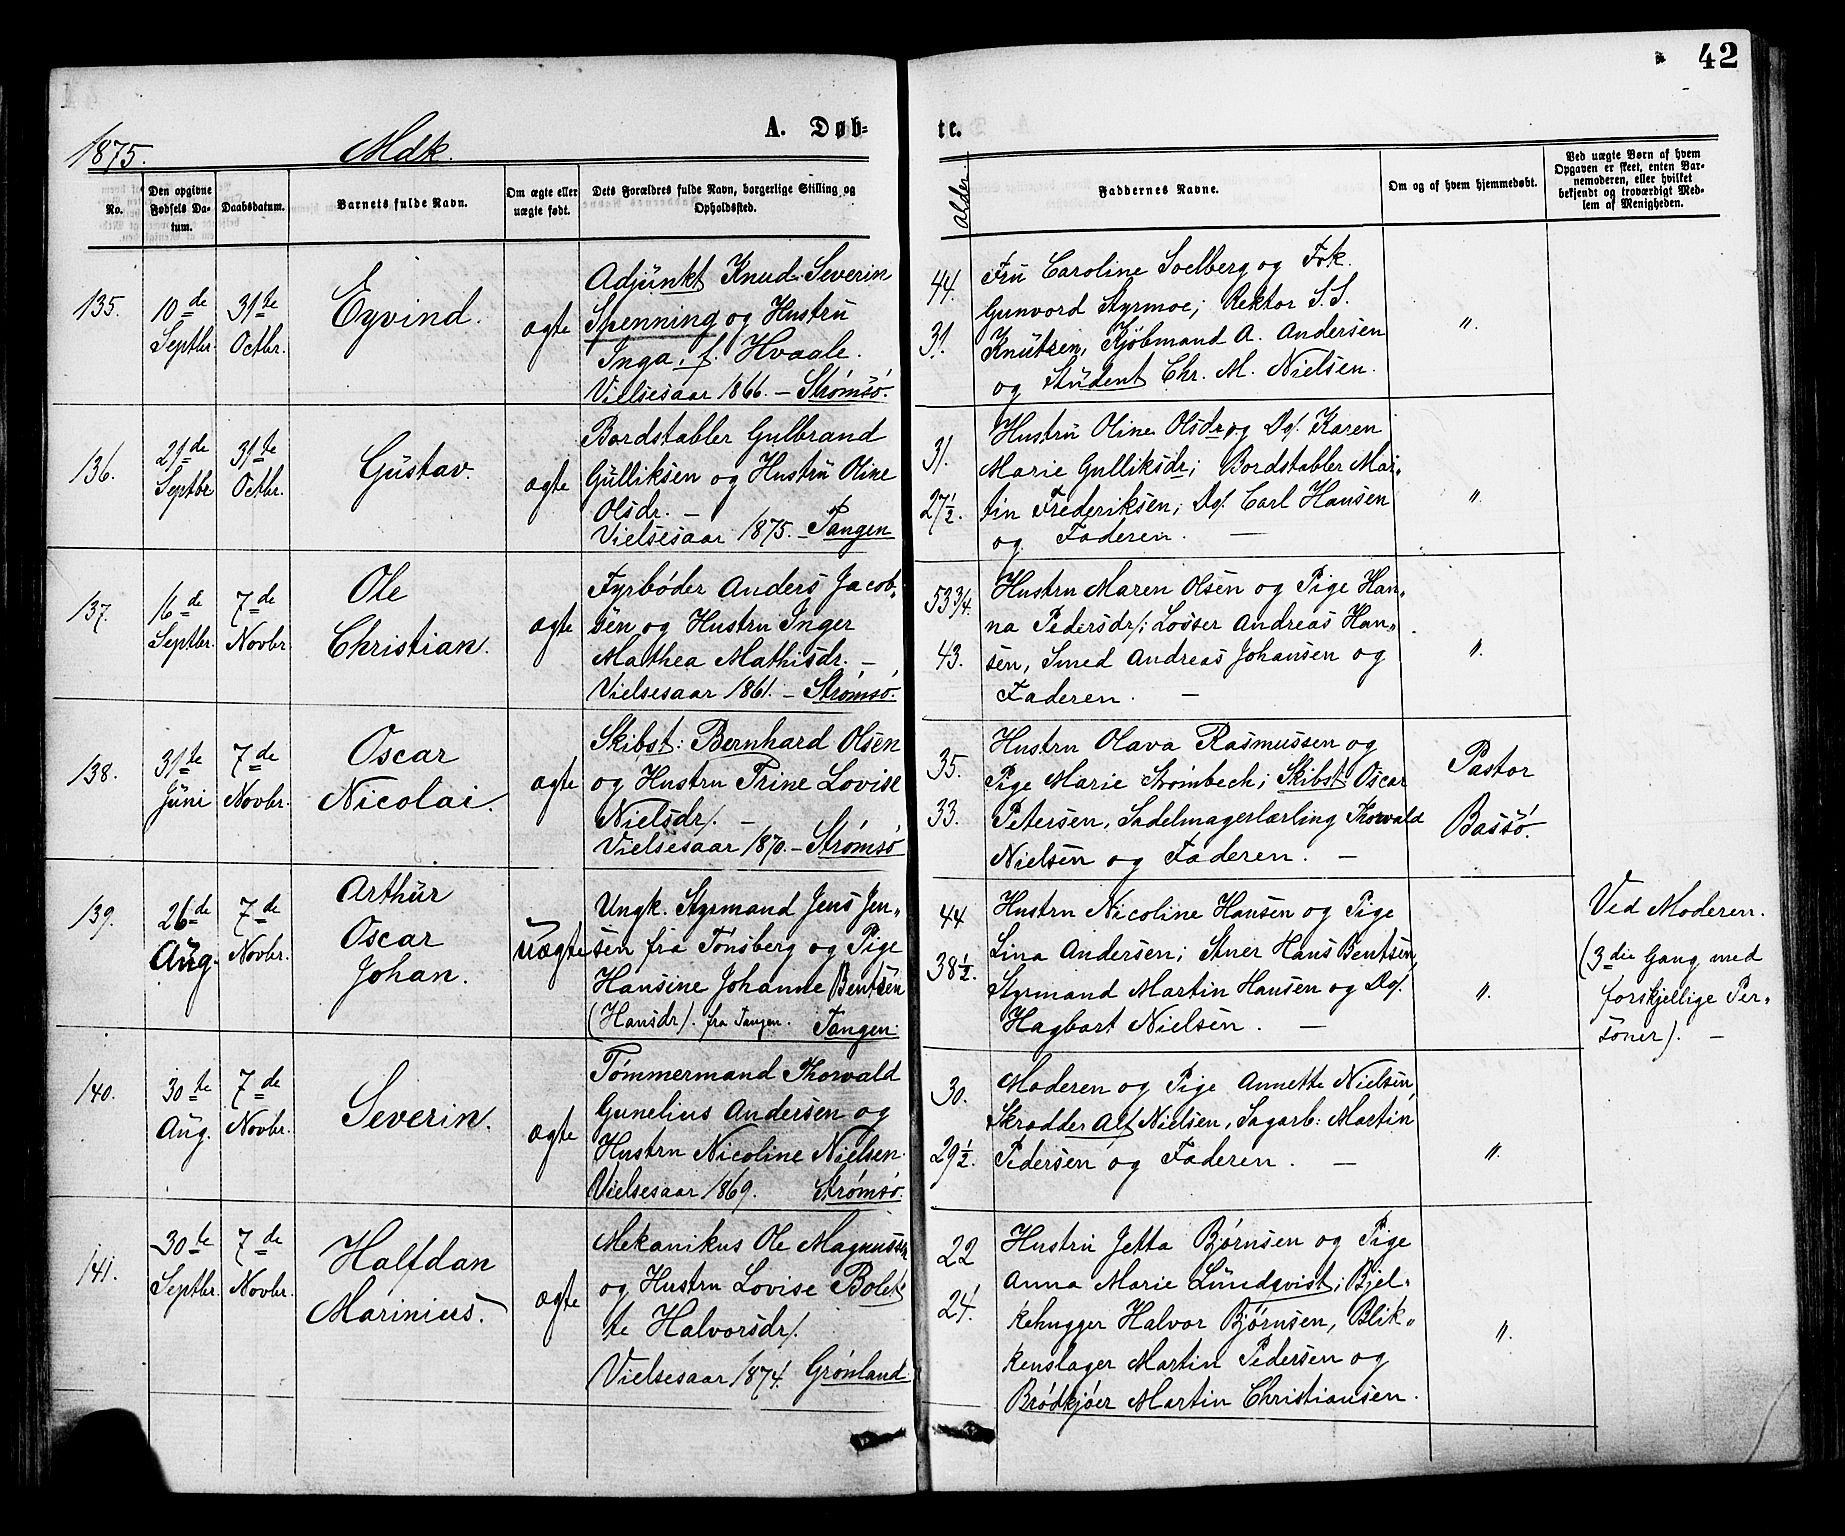 42
1875.
Mdk.
A. Døb-
te.
No.
Den opgivne
Fødsels Da-
tum.
Daabsdatum.
Barnets fulde Navn.
Om ægte eller
uægte født.
Dets Forældres fulde Navn, borgerlige Stilling og
Opholdssted.
Alder
Faddernes Navne.
Om og af hvem hjemmedøbt.
Ved uægte Børn af hvem
Opgaven er skeet, enten Bar-
nemoderen, eller hvilket
bekjendt og troværdigt Med-
lem af Menigheden.
135.
10de
Septbr.
31te
Octbr.
Eyvind.
ægte
Adjunkt Knud Severin
Spenning og Hustru
Inga, f. Hvaale.
Vielsesaar 1866. — Strømsø.
44.
31.
Fru Caroline Soelberg og Frk.
Gunvord Styrmoe; Rektor S.S.
Knutzen, Kjøbmand A. Andersen
og Student Chr. M. Nielsen.
"
136.
21de
Septbr
31te
Octbr.
Gustav.
ægte
Bordstabler Gulbrand
Gulliksen og Hustru Oline
Olsdr. —
Vielsesaar 1875. — Tangen
31.
27½.
Hustru Oline Olsdr og Do/. Karen
Marie Gulliksdr; Bordstabler Mar-
tin Frederiksen; Do/. Carl Hansen
og Faderen. —
"
137.
16de
Septbr.
7de
Novbr
Ole
Christian.
ægte
Fyrbøder Anders Jacob-
sen og Hustru Inger
Mathea Mathisdr. —
Vielsesaar 1861. — Strømsø.
53¾.
43.
Hustru Maren Olsen og Pige Han-
na Pedersdr/; Losser Andreas Han-
sen, Smed Andreas Johansen og
Faderen. —
"
138.
31te
Juni
7de
Novbr.
Oscar
Nicolai.
ægte
Skibst: Bernhard Olsen
og Hustru Trine Lovise
Nielsdr/. —
Vielsesaar 1870. — Strømsø
35.
33.
Hustru Olava Rasmussen og
Pige Marie Strømbech; Skibst: Oscar
Petersen, Sadelmagerlærling Thorvald
Nielsen og Faderen. —
Pastor
Bassø.
139.
26de
Aug.
7de
Novbr.
Arthur
Oscar
Johan.
Uægte
Ungk. Styrmand Jens Jen-
sen fra Tønsberg og Pige
Hansine Johanne Bentsen
(Hansdr/. fra Tangen. Tangen.
44
38½.
Hustru Nicoline Hansen og Pige
Lina Andersen; Stuer Hans Bentsen,
Styrmand Martin Hansen og Do/.
Hagbart Nielsen. —
"
Ved Moderen.
(3die Gang med
forskjellige Per-
soner). —
140.
30te
Aug.
7de
Novbr.
Severin.
ægte
Tømmermand Thorvald
Gunelius Andersen og
Hustru Nicoline Nielsen.
Vielsesaar 1869. Strømsø.
30.
29½.
Moderen og Pige Annette Nielsen,
Skrædder Alf Nielsen, Sagarb: Martin
Pedersen og Faderen. —
"
141.
30te
Septbr.
7de
Novbr.
Halfdan
Marinius.
ægte
Mekanikus Ole Magnussen
og Hustru Lovise Bolet-
te Halvorsdr/.
Vielsesaar 1874. Grønland.
22
24.
Hustru Jetta Bjørnsen og Pige
Anna Marie Lundqvist; Bjel-
kehugger Halvor Bjørnsen, Blik-
kenslager Martin Pedersen og
Brødkjøer Martin Christiansen.
"